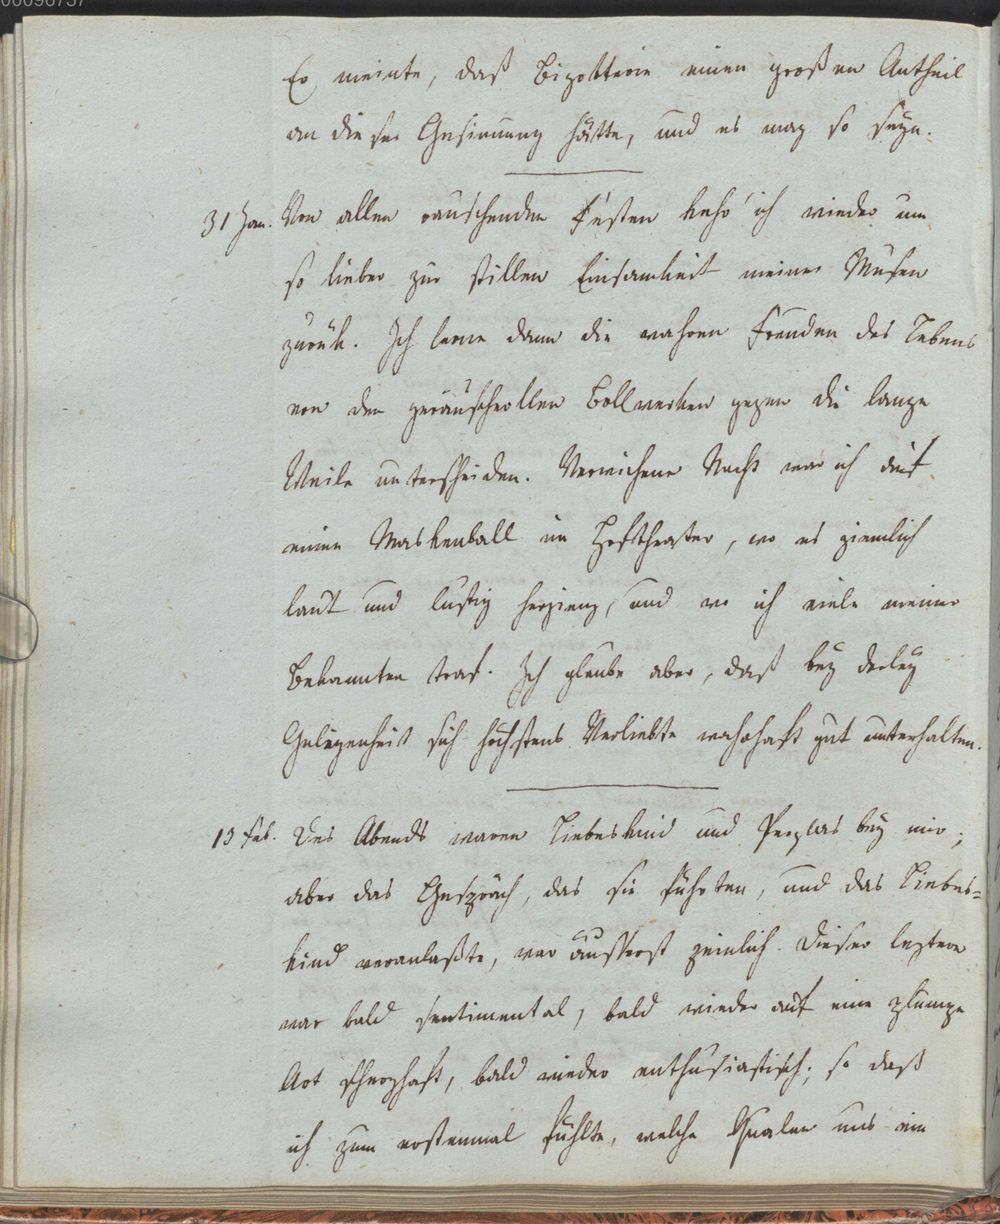 00096737
Er meinte, daß Bigotterie einen großen Antheil
an dieser Gesinnung hätte, und es mag so seyn.
31 Jan. Von allen rauschenden Festen kehr' ich wieder um
so lieber zur stillen Einsamkeit meiner Musen
zurük. Ich lerne dann die wahren Freuden des Lebens
von den geräuschvollen Bollwerken gegen die lange
Weile unterscheiden. Verwichene Nacht war ich auf
einem Maskenball im Hoftheater, wo es ziemlich
laut und lustig hergieng, und wo ich viele meiner
Bekannten traf. Ich glaube aber, daß bey derley
Gelegenheit sich höchstens Verliebte wahrhaft gut unterhalten.
13 Feb. Des Abends waren Liebeskind und Perglas bey mir;
aber das Gespräch, das sie führten, und das Liebes=
kind veranlaßte, war äusserst peinlich. Dieser leztere
war bald sentimental, bald wieder auf eine plumpe
Art scherzhaft, bald wieder enthusiastisch; so daß
ich zum erstenmal fühlte, welche Qualen uns ein